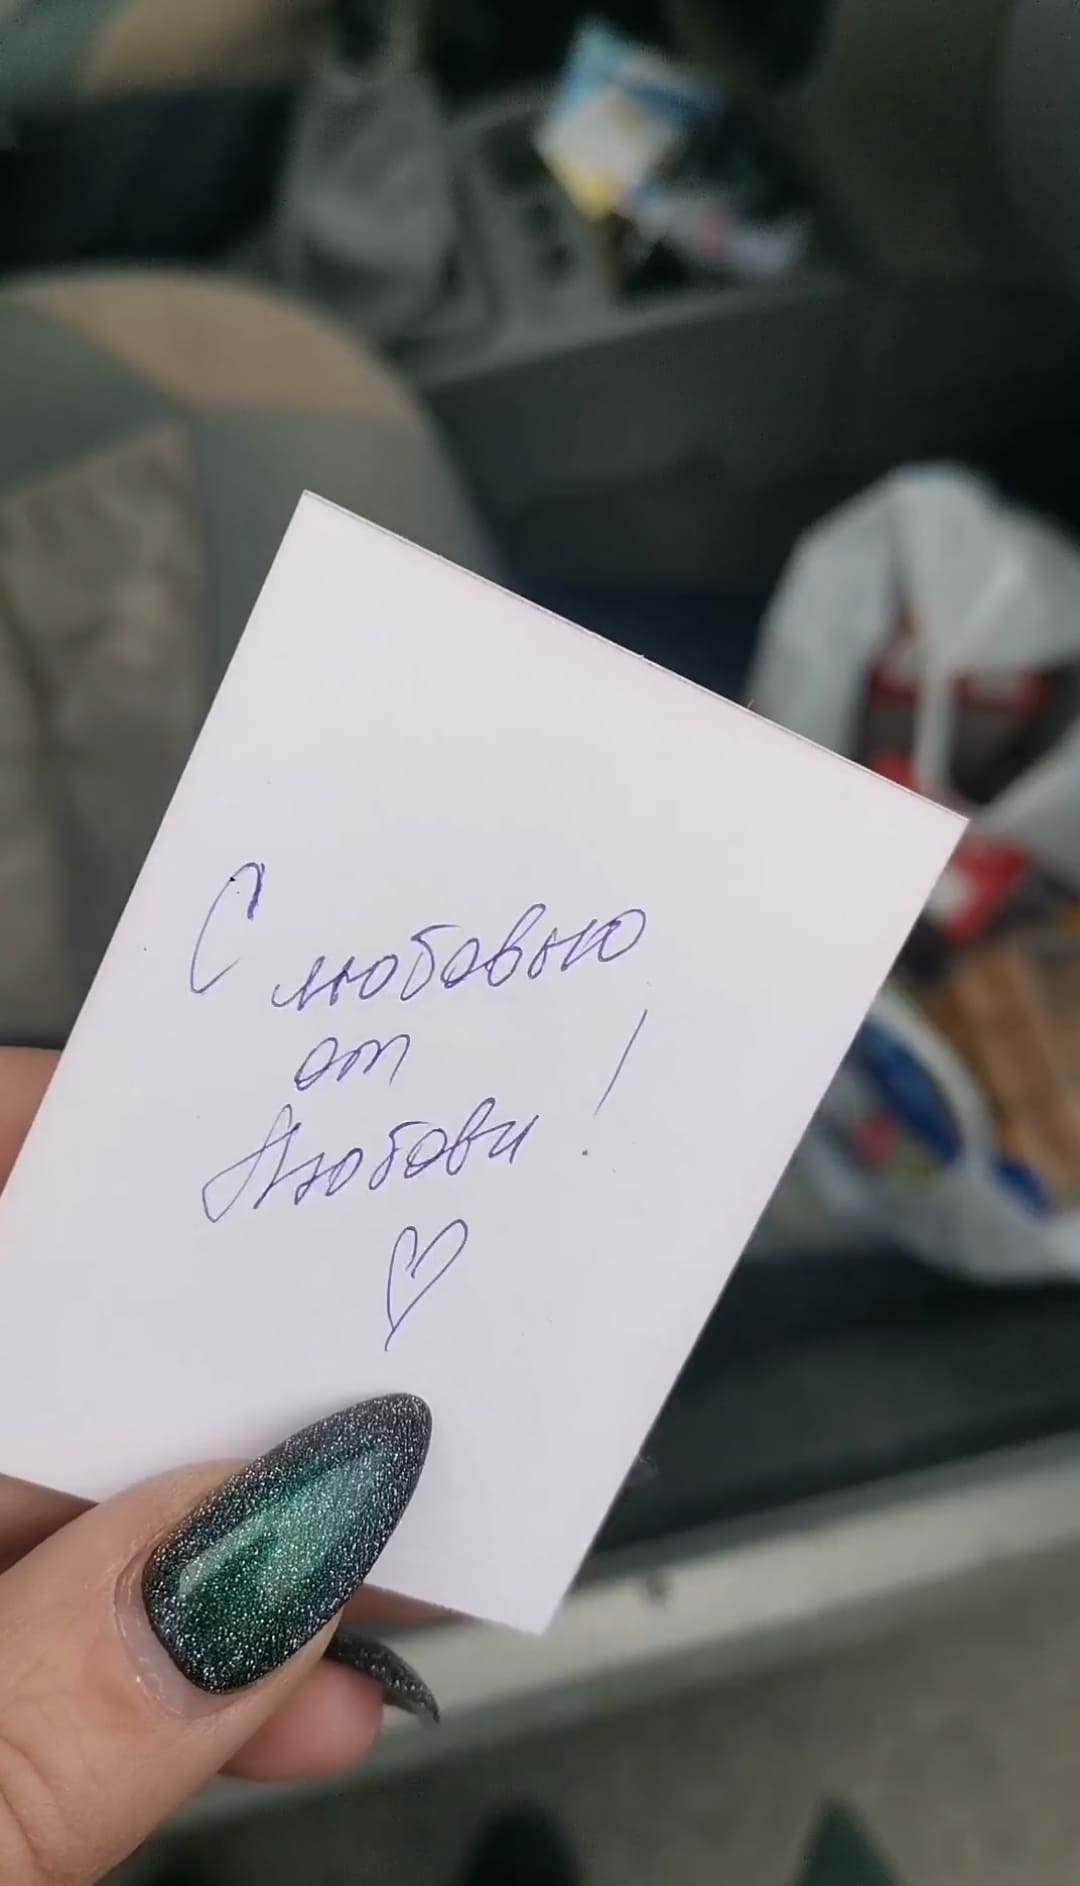 С любовью
от
Любови!